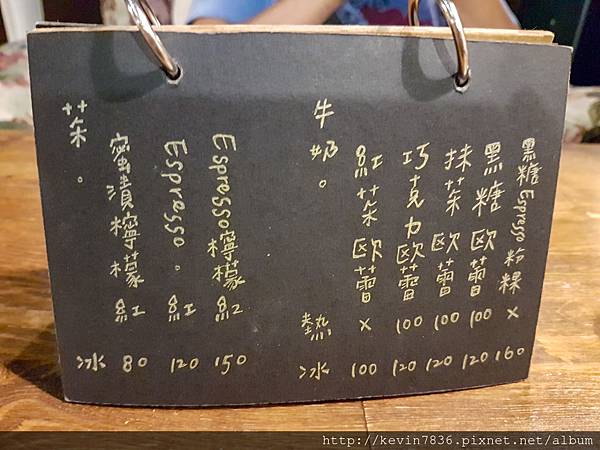 黑糖Espresso粉粿 × 160
黑糖歐蕾 100 120
抹茶歐蕾 100 120
巧克力歐蕾 100 120
紅茶歐蕾 × 100
牛奶。 熱 冰
Espresso檸檬紅 150
Espresso。紅 120
蜜漬檸檬紅 80
茶。 冰
http://kevin7836.pixnet.net/album